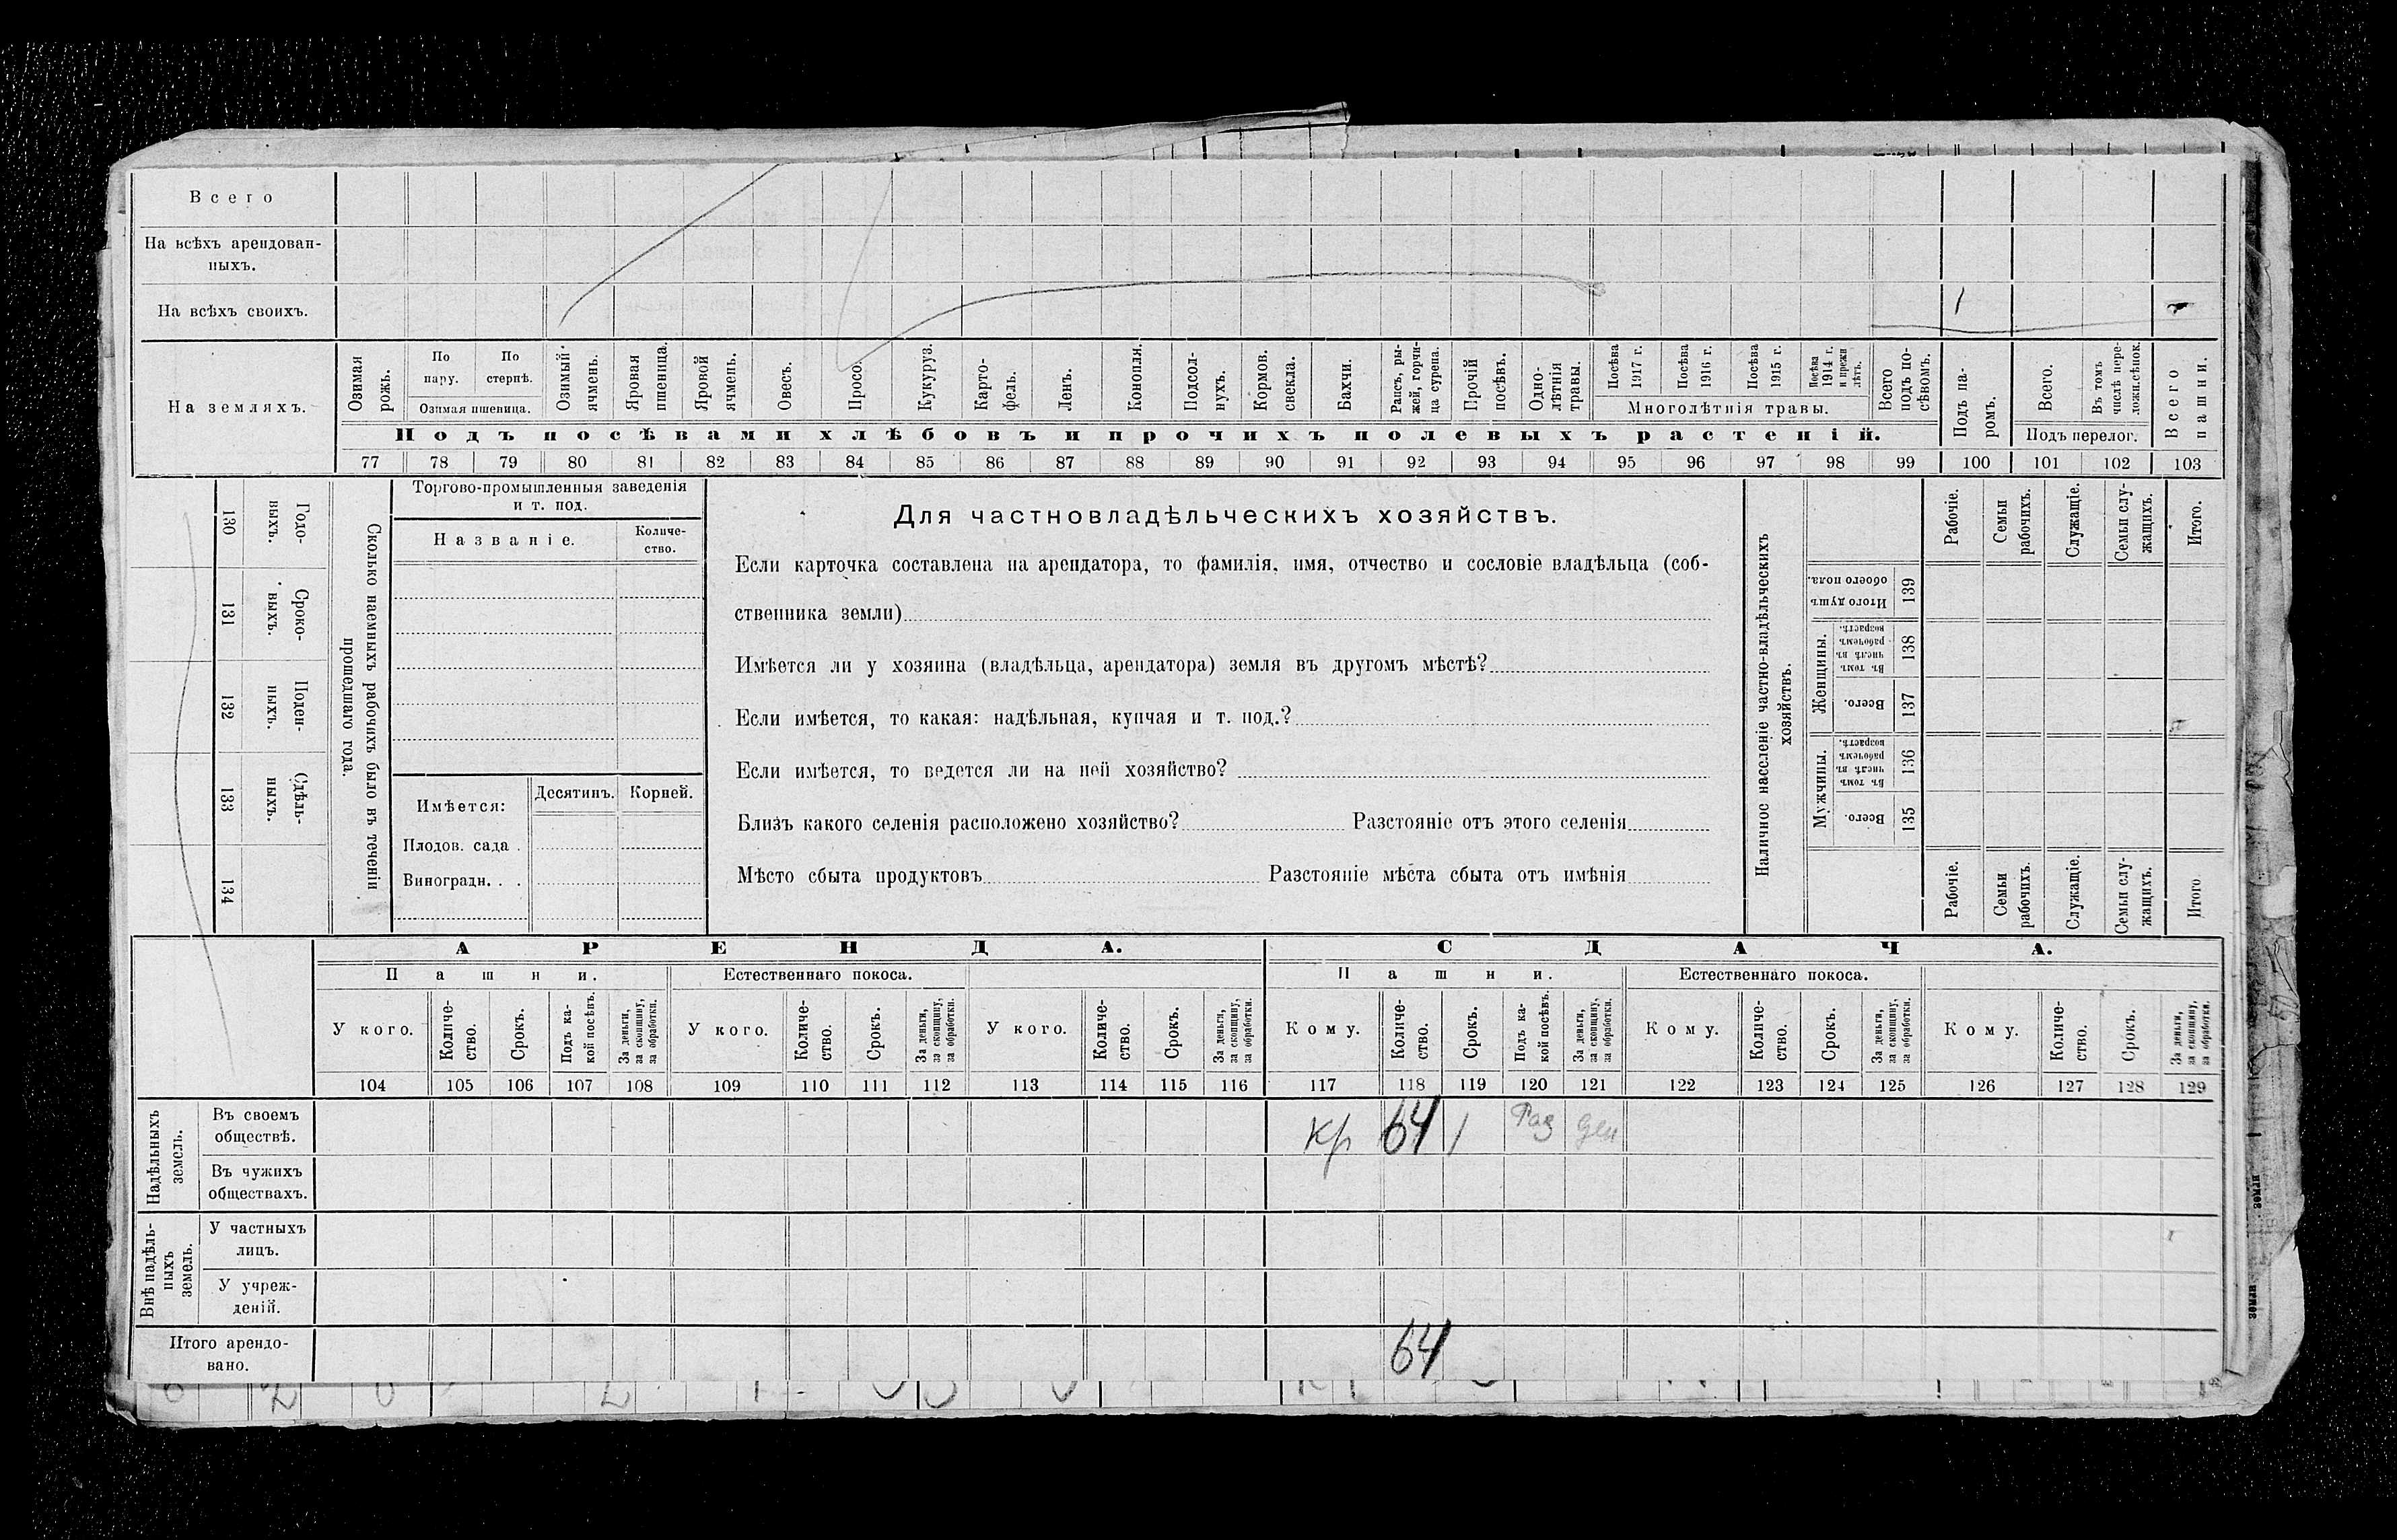 Всего
На всѣхъ арендован-
ныхъ.
На всѣхъ своихъ. 1
На земляхъ.
Озимая рожь.
По пару.
По стернѣ.
Озимая пшеница.
Озимый ячмень.
Яровая пшеница.
Яровой ячмень.
Овесъ.
Просо.
Кукуруз.
Карто-
фель.
Ленъ.
Конопля.
Подсол-
нухъ.
Кормов. свекла.
Бахчи.
Рапсъ, ры-
жей, горчи-
ца сурепа.
Прочій посѣвъ.
Одно-
лѣтнія травы.
Посѣва 1917 г.
Посѣва 1916 г.
Посѣва 1915 г.
Посѣва 1914 г. и прежн лѣтъ.
Многолѣтнія травы.
Всего подъ по-
сѣвомъ.
Подъ па-
ромъ.
Всего.
Въ томъ числѣ пере-
лож.сѣнок.
Подъ перелог.
Всего пашни.
Подъ посѣвами хлѣбовъ и прочихъ полевыхъ растеній.
77 78 79 80 81 82 83 84 85 86 87 88 89 90 91 92 93 94 95 96 97 98 99 100 101 102 103
130 Годо-
выхъ.
131 Сроко-
выхъ.
132 Поден-
ныхъ.
133 Сдѣль-
ныхъ.
134
Сколько наемныхъ рабочихъ было въ теченіи
прошедшаго года.
Торгово-промышленныя заведенія
и т. под.
Названіе.
Количе-
ство.
Имѣется: Десятинъ. Корней.
Плодов. сада .
Виноградн. . .
Для частновладѣльческихъ хозяйствъ.
Если карточка составлена на арендатора, то фамилія, имя, отчество и сословіе владѣльца (соб-
ственника земли)
Имѣется ли у хозяина (владѣльца, арендатора) земля въ другомъ мѣстѣ?
Если имѣется, то какая: надѣльная, купчая и т. под.?
Если имѣется, то ведется ли на ней хозяйство?
Близъ какого селенія расположено хозяйство? Разстояніе отъ этого селенія
Мѣсто сбыта продуктовъ Разстояніе мѣста сбыта отъ имѣнія
Наличное населеніе частно-владѣльческихъ
хозяйствъ.
Рабочіе.
Семьи рабочихъ.
Служащіе.
Семьи слу-
жащихъ.
Итого.
Итого душъ обоего пола. 139
Женщины.
Въ томъ числѣ въ рабочемъ возрастѣ. 138
Всего. 137
Мужчины.
Въ томъ числѣ въ рабочемъ возрастѣ. 136
Всего. 135
Рабочіе.
Семьи рабочихъ.
Служащіе.
Семьи слу-
жащихъ.
Итого
АРЕНДА. СДАЧА.
Пашни. Естественнаго покоса. Пашни. Естественнаго покоса.
У кого.
Количе-
ство.
Срокъ.
Подъ ка-
кой посѣвъ.
За деньги, за скопщину, за обработки.
У кого.
Количе-
ство.
Срокъ.
За деньги, за скопщину, за обработки.
У кого.
Количе-
ство.
Срокъ.
За деньги, за скопщину, за обработки.
Кому.
Количе-
ство.
Срокъ.
Подъ ка-
кой посѣвъ.
За деньги, за скопщину, за обработки.
Кому.
Количе-
ство.
Срокъ.
За деньги, за скопщину, за обработки.
Кому.
Количе-
ство.
Срокъ.
За деньги, за скопщину, за обработки.
104 105 106 107 108 109 110 111 112 113 114 115 116 117 118 119 120 121 122 123 124 125 126 127 128 129
Надѣльныхъ земель.
Въ своемъ
обществѣ. Кр 64 1 Раз ден
Въ чужихъ
обществахъ.
Внѣ надѣль-
ныхъ земель.
У частныхъ
лицъ.
У учреж-
деній.
Итого арендо-
вано. 64